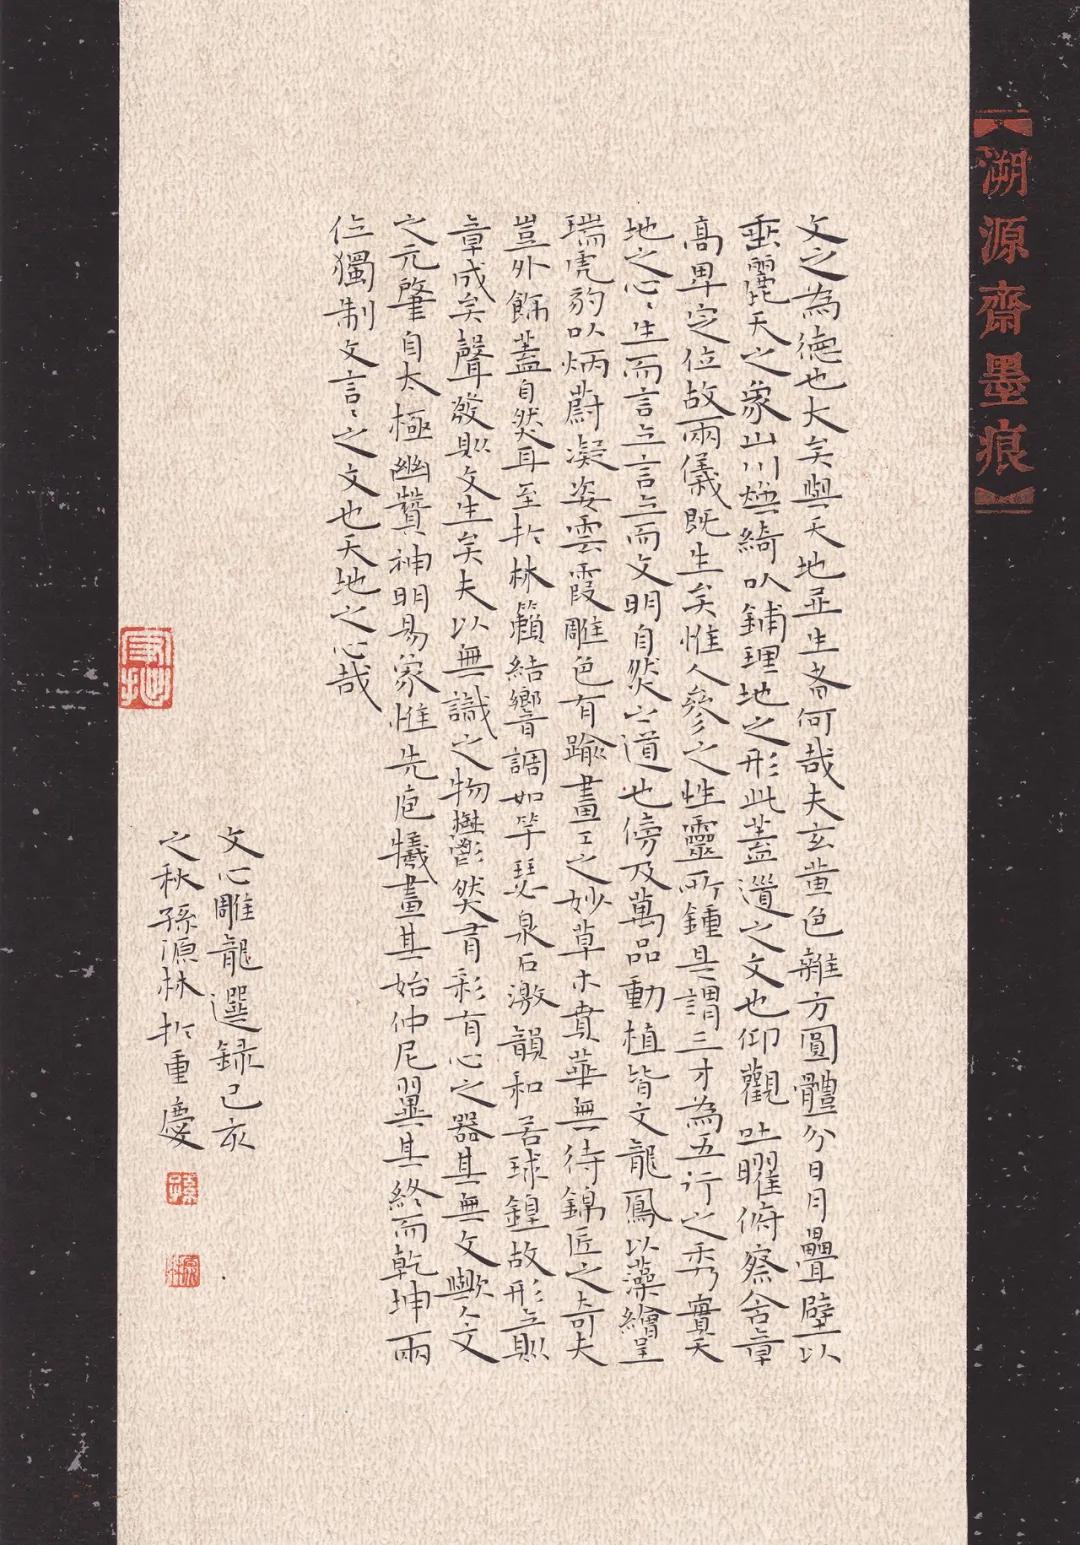 【溯源齋墨痕】
文之為德也大矣與天地並生者何哉夫玄黃色雜方圓體分日月疊壁以
垂麗天之象山川煥綺以鋪理地之形此蓋道之文也仰觀吐曜俯察含章
高卑定位故兩儀既生矣惟人參之性靈所鍾是謂三才為五行之秀實天
地之心〻生而言立言立而文明自然之道也傍及萬品動植皆文龍鳳以藻繪呈
瑞虎豹以炳蔚凝姿雲霞雕色有踰畫工之妙草木賁華無待錦匠之奇夫
豈外飾蓋自然耳至於林籟結響調如竽瑟泉石激韻和若球鍠故形立則
章成矣聲發則文生矣夫以無識之物鬱然有彩有心之器其無文歟人文
之元肇自太極幽贊神明易象惟先庖犧畫其始仲尼翼其終而乾坤兩
位獨制文言〻之文也天地之心哉
文心雕龍選録己亥
之秋孫源林於重慶